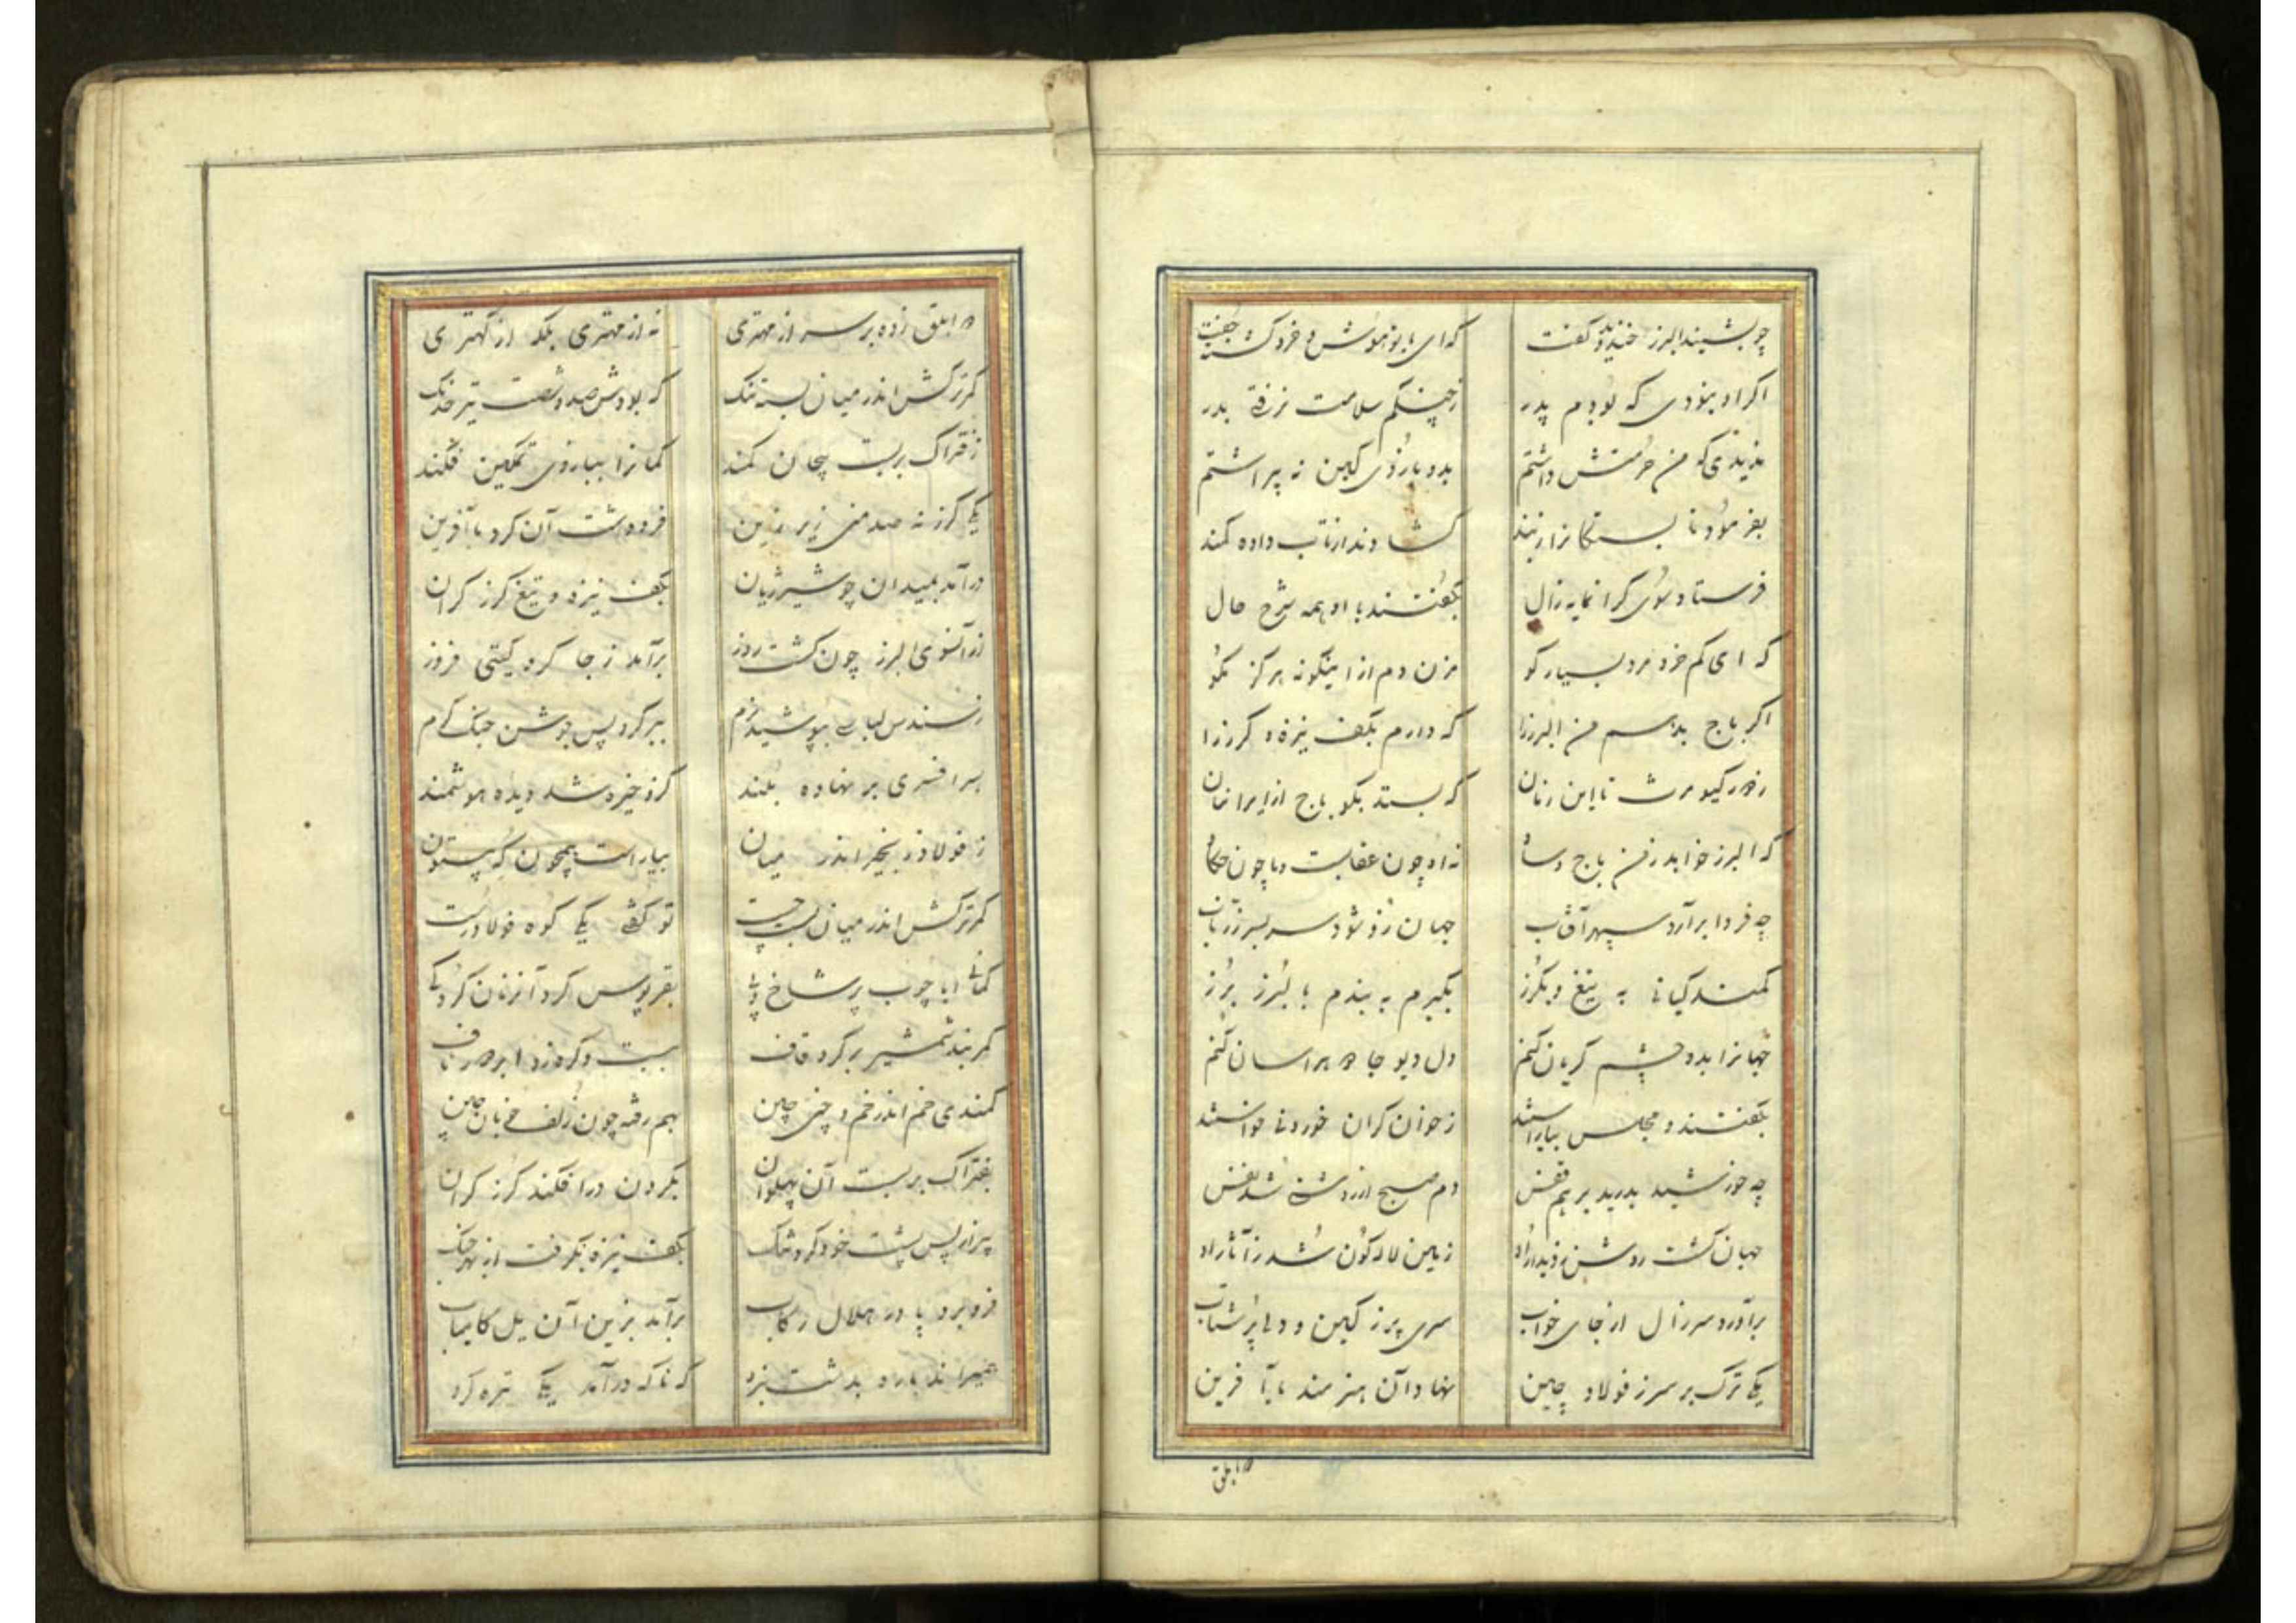 چو بشنید البرز خندید و گفت که ای با تو هوش و خرد گشته جفت
اکر او نبودی که بودم پدر ز چنکم سلامت نرفتی بدر
من حرمتش داشتم بدو بازوی کین نه پراشتم
بفرمود تا بستکانرا زبند کشادند از تاب داده کمند
فرستاد سوی کرانمایه زال بکفتند با او همه شرح حال
که ای کم خرد مرد بسیار کو مزن دم از اینکونه هرکز مکو
اکر باج بدهم من البرز را که دارم بکف نیزه و کرز را
کیومرث تا این زمان که بستد بکو باج از ایرانیان
که البرز خواهد ز من باج و ساو نه او چون عقابست و ما چون
چه فردا برآرد سپهر آفتاب جهان زو شود سربسر
کمند کیانی به تیغ و بکرز بکیرم به بندم بالبرز برز
جهانرا بدو چشم کریان کنم دل دیو جادو هراسان کنم
بکفتند و مجلس بیاراستند ز خوان کران خوردنی خواستند
چه خورشید بدرید برهم قفس دم صبح از روشنی شد نفس
جهان کشت روشن ز دیدار او زمین لاله کون شد ز آثار او
برآورد سر زال از جای خواب سری پر ز کین و دلی پر شتاب
یکی ترک بر سر ز فولاد چین نهاد آن هنرمند با آفرین
دو ابلق
دو ابلق زده بر سر از مهتری نه از مهتری بلکه از کهتری
کمرترکش اندر میان بست تنک که بودش صد و شصت تیر خدنک
ز فتراک بربست پیچان کمند کمانرا ببازوی تمکین فکند
یکی کرز نه صد منی زیر زین فروهشت آن کرد با آفرین
درآمد بمیدان چو شیر ژیان بکف نیزه و تیغ و کرز کران
از آنسوی البرز چون کشت روز برآمد ز جا کرد کیتی فروز
ز سندس لباسی بپوشید نرم ببر کرد پس جوشن جنک کرم
بسر افسری بر نهاده بلند کزو خیره شد دیده هوشمند
ز فولاد زنجیر اندر میان بیاراست همچون که بیستون
کمرترکش اندر میان بست چست تو کفتی یکی کوه فولاد رست
کمانی ابا چوب پر شاخ و پی بقرپوس کرد آنزمان کرد کی
کمربند شمشیر بر کرد قاف ببست و کره زد ناف
کمندی خم اندر خم و چین چین بهم رفته چون زلف خوبان چین
بفتراک بربست آن پهلوان بکردن درافکند کرز کران
سپر از پس پشت خود کرد تنک بکف نیزه بکرفت از بهر جنک
فرو برد پا در هلال رکاب برآمد بزین آن یل کامیاب
همیراند باره بدشت نبرد که ناکه درآمد یکی تیره کرد